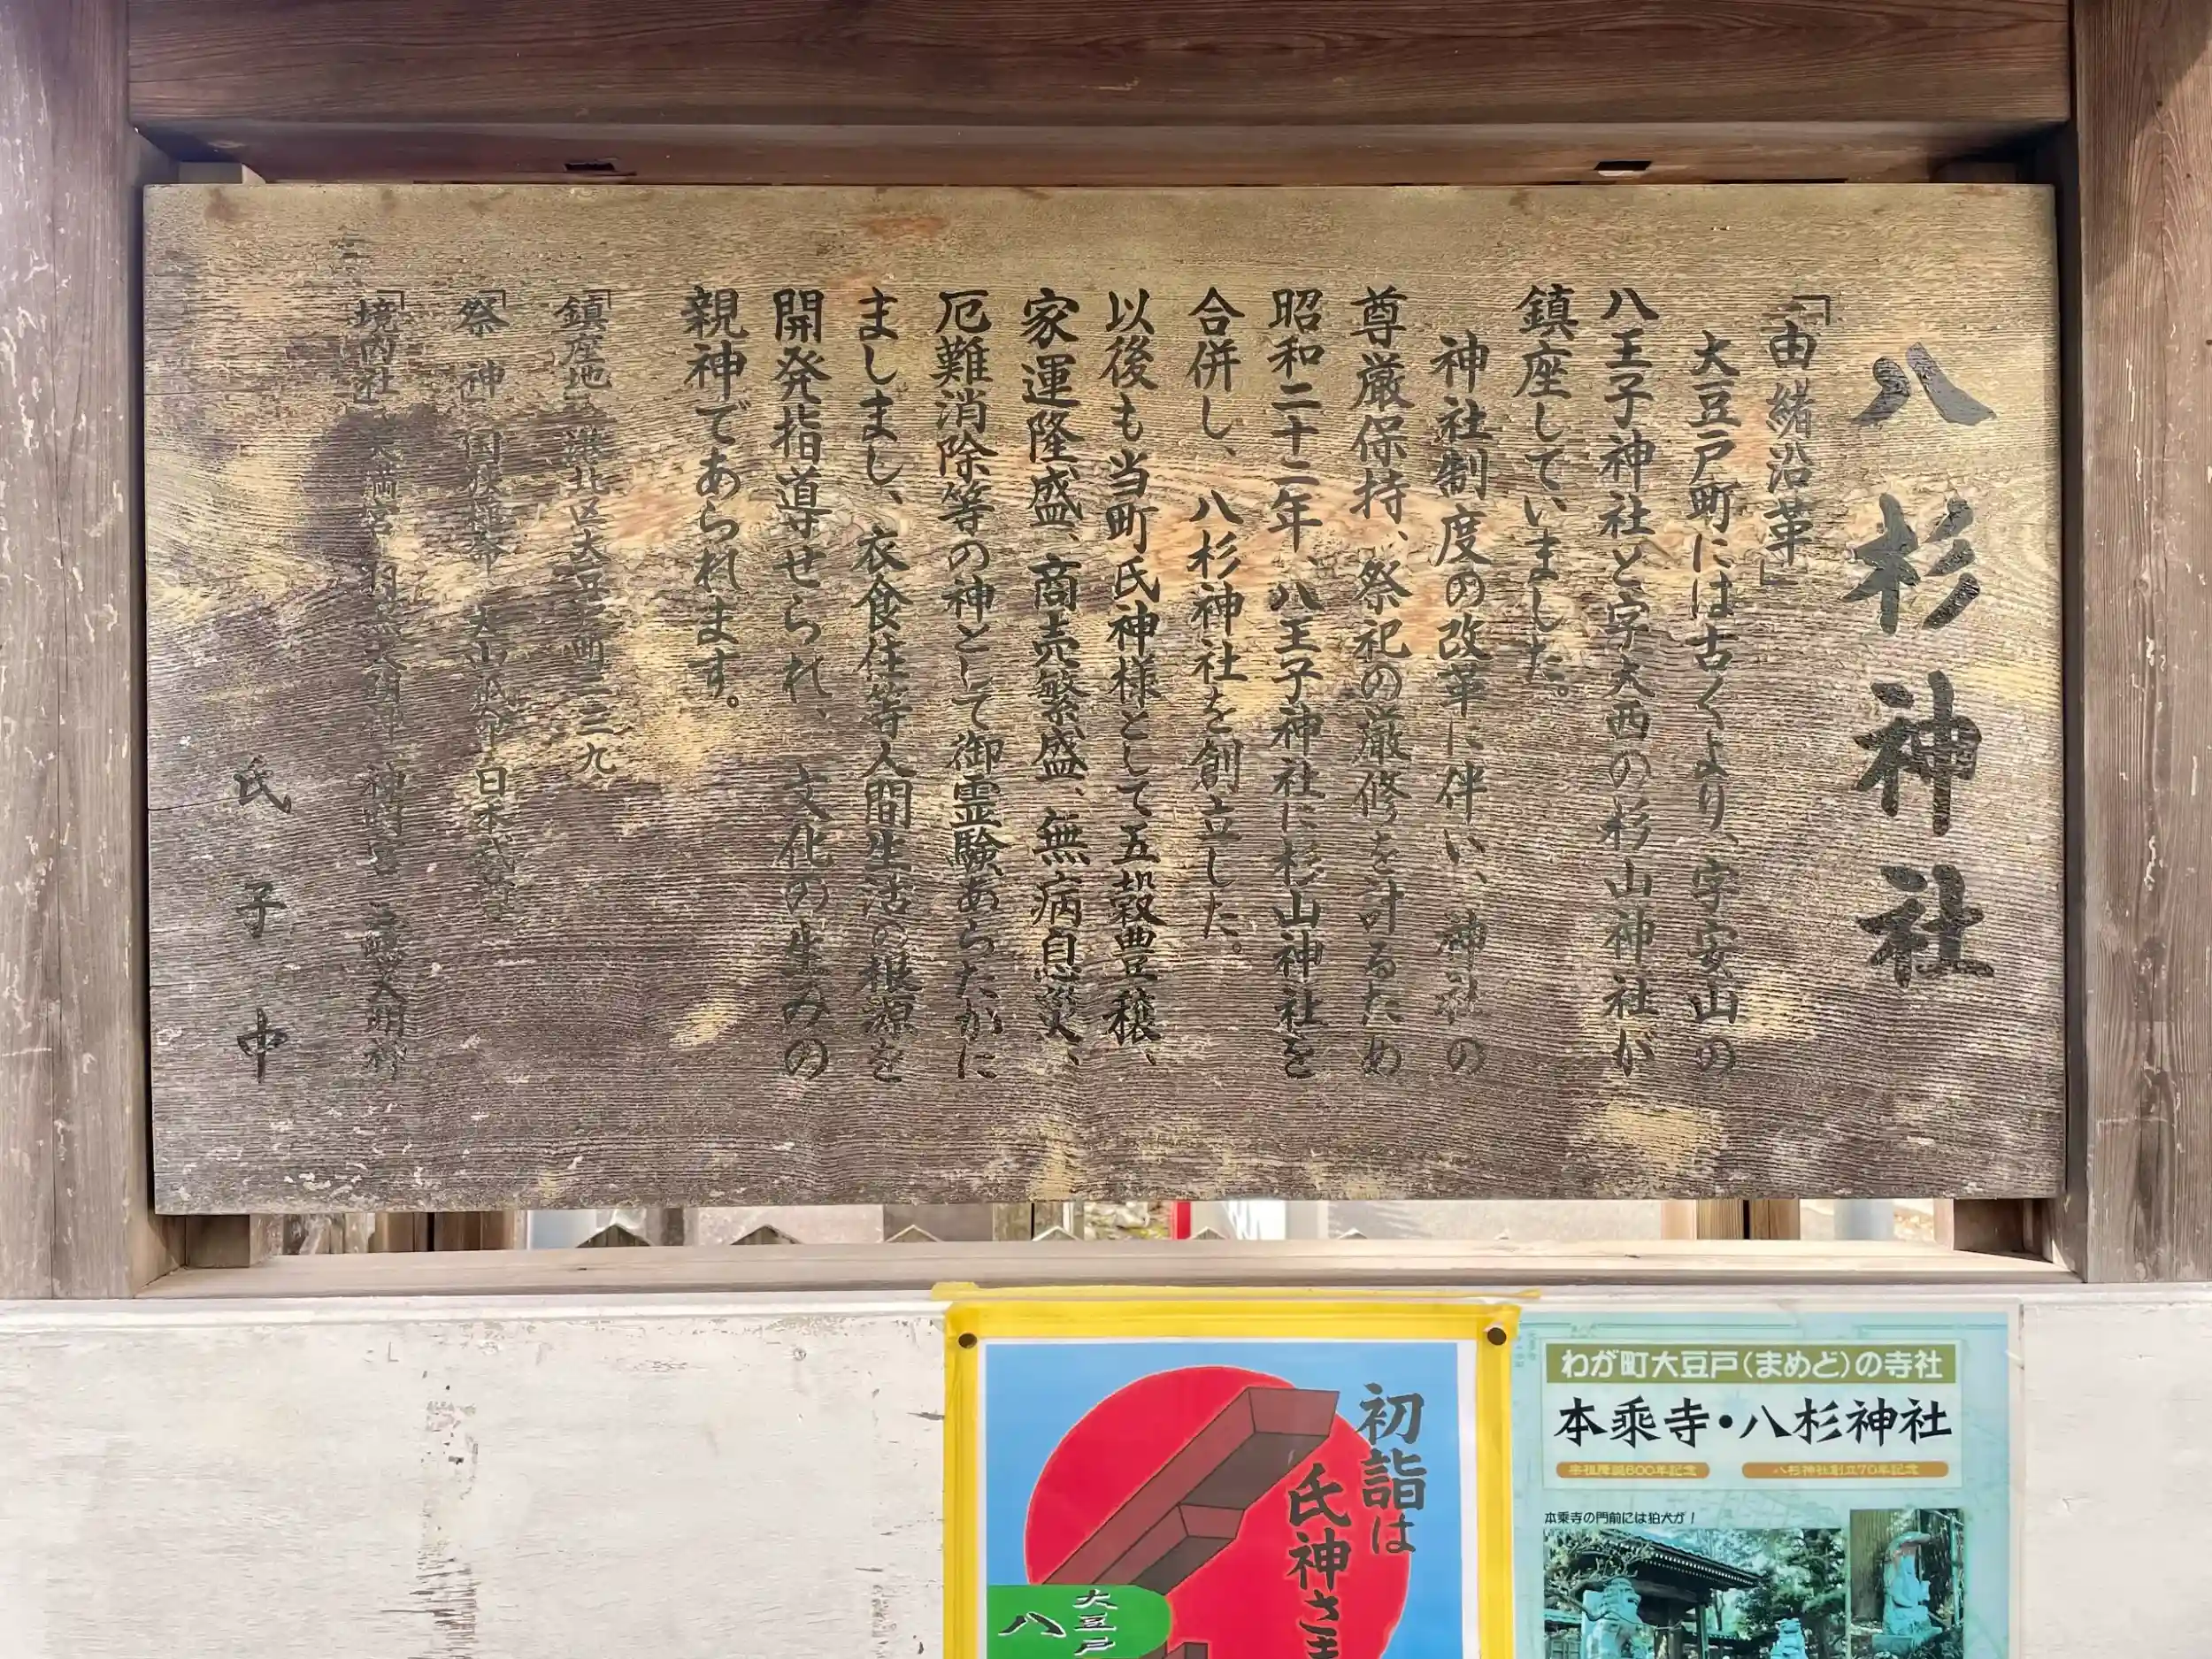 八杉神社
「由緒沿革」
大豆戸町には古くより、字安山の
八王子神社と字大西の杉山神社が
鎮座していました。
神社制度の改革に伴い、神社の
尊厳保持、祭祀の厳修を計るため
昭和二十二年、八王子神社に杉山神社を
合併し、八杉神社を創立した。
以後も当町氏神様として五穀豊穣、
家運隆盛、商売繁盛、無病息災、
厄難消除等の神として御霊験あらたかに
ましまし、衣食住等人間生活の根源を
開発指導せられ、文化の生みの
親神であられます。
「鎮座地 港北区大豆戸町二三九
「祭神 大山祇命 日本武尊
「境内社 天満宮 神明宮 大明神
氏子中
初詣は
氏神さま
大豆戸
八
わが町大豆戸(まめど)の寺社
本乗寺・八杉神社
宗祖降誕800年記念
八杉神社創立70年記念
本乗寺の門前には狛犬が!